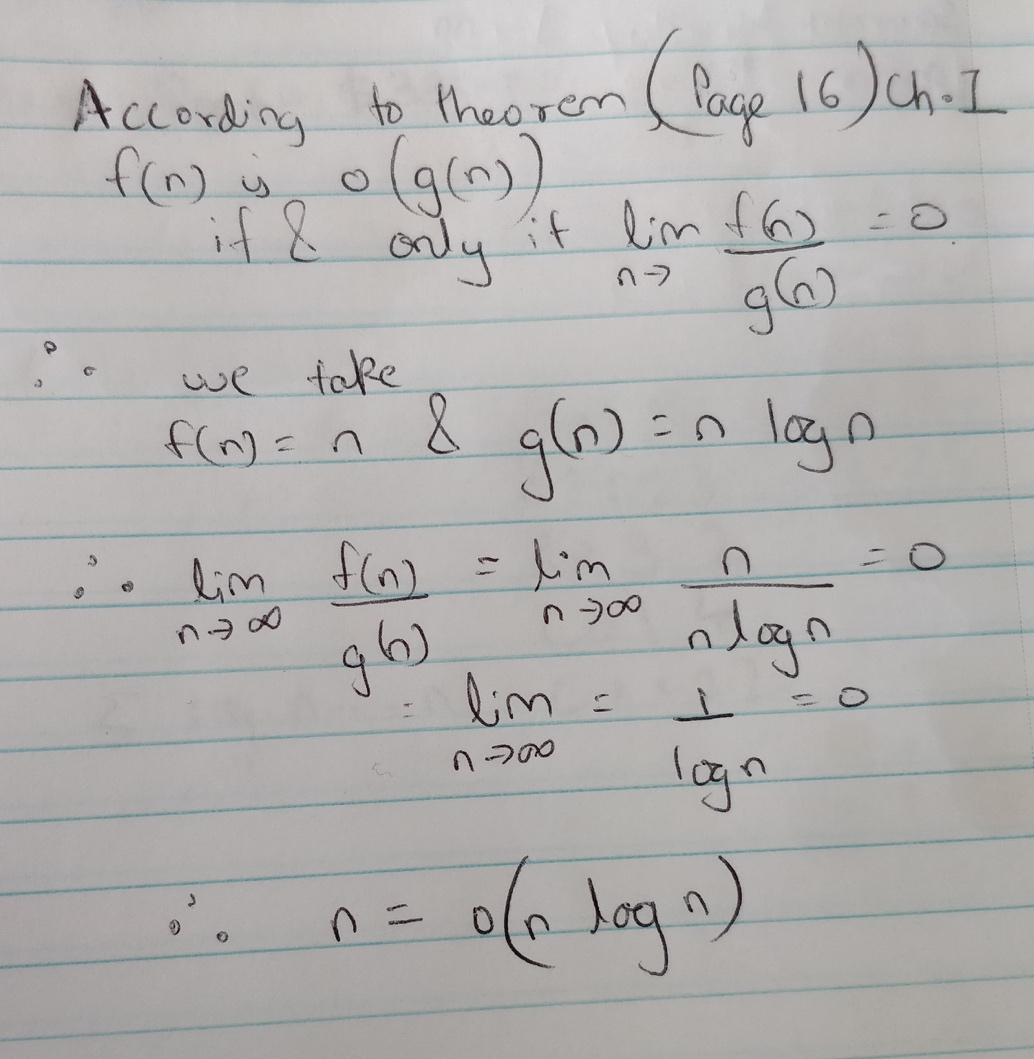 According to theorem (Page 16) Ch. I
f(n) is o(g(n))
if & only if lim n→ f(n)/g(n) = 0
∴ we take
f(n) = n & g(n) = n log n
∴ lim n→∞ f(n)/g(n) = lim n→∞ n/(n log n) = 0
= lim n→∞ = 1/log n = 0
∴ n = o(n log n)